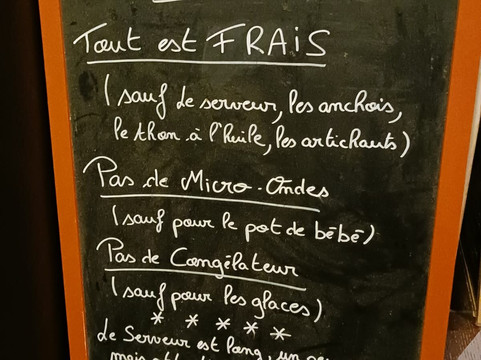 Tout est FRAiS
(sauf le serveur, les anchois,
le thon à l'huile, les artichauts)
Pas de Micro-Ondes
(sauf pour le pot de bébé)
Pas de Congélateur
(sauf pour les glaces)
* * * * *
Le Serveur est lang, un
mais